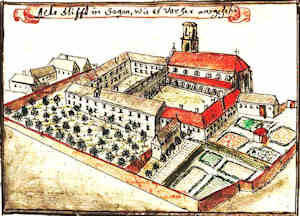 Alte Stifft in Sagan, wie es vorher ausgesehen